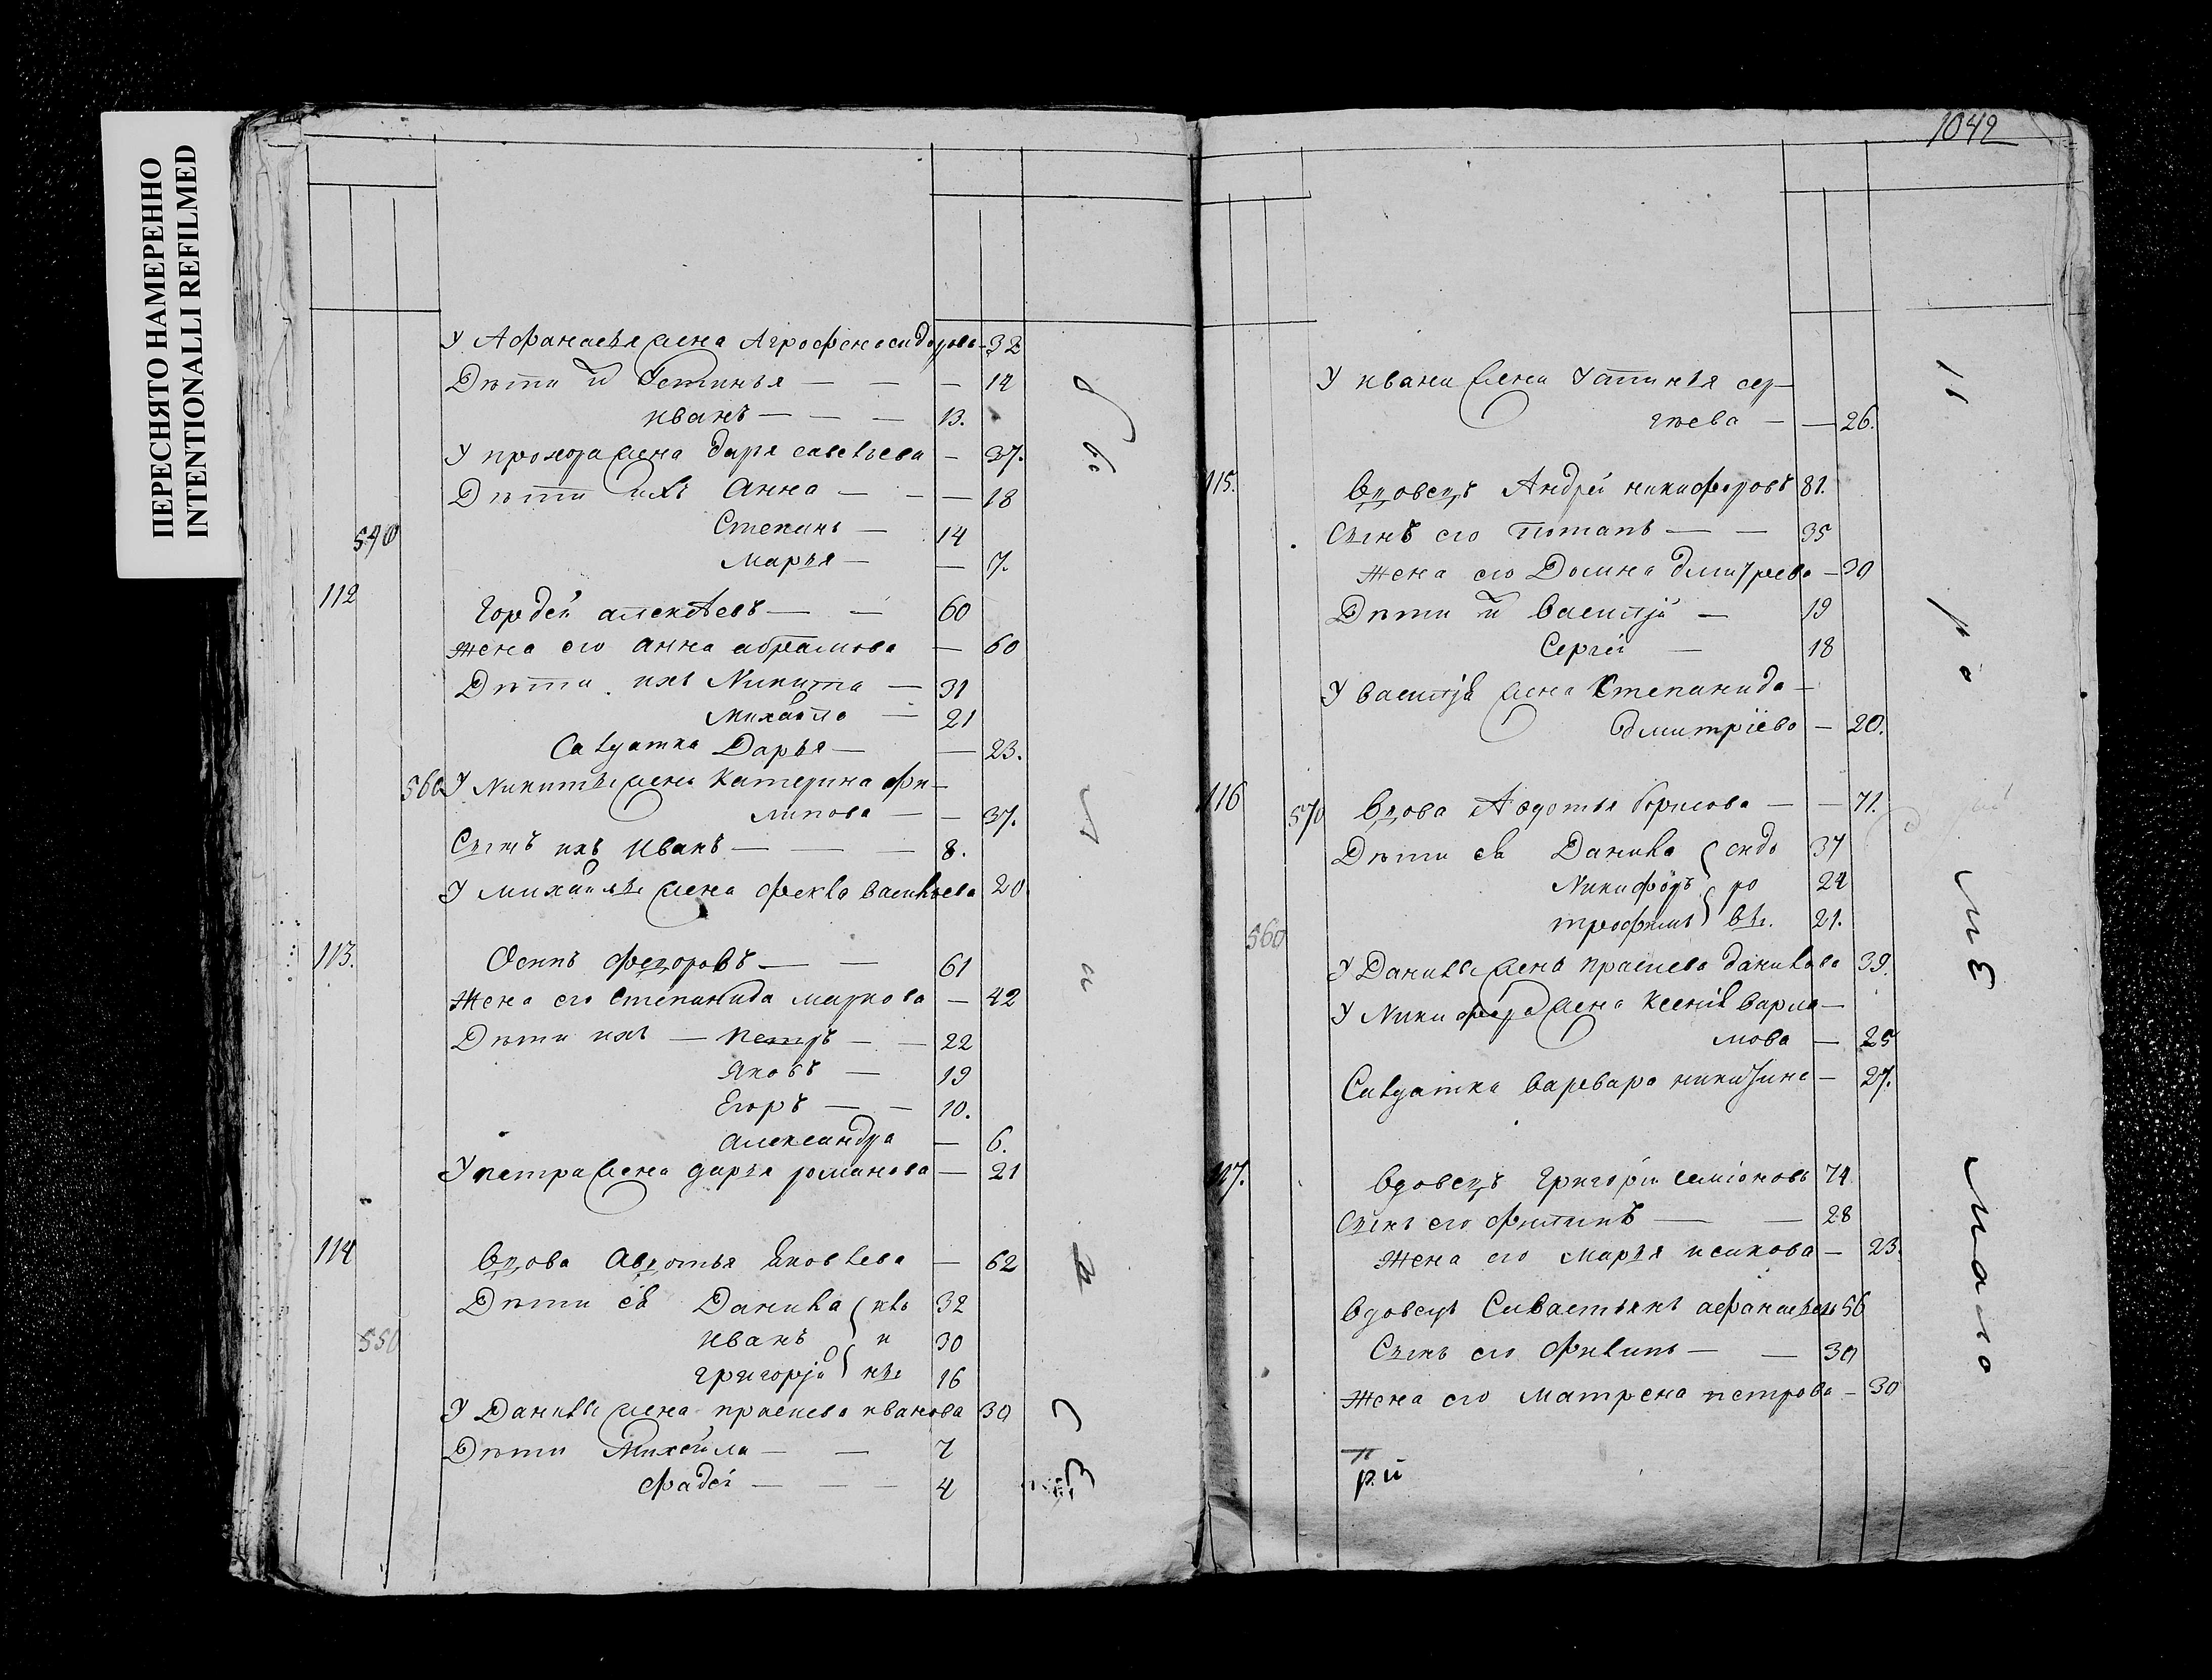 ПЕРЕСНЯТО НАМЕРЕННО
INTENTIONALLI REFILMED
У Афанасья жена Агрофена сидорова 32
Дѣти и Устинья — — — 14
иванъ — — — 13.
У прохора жена дарья савельева — 37.
Дѣти ихъ Анна — — — 18
Степанъ — 14
540
Марья — — 7.
112 Гордей алексѣевъ — — 60
Жена его анна абрамова — 60
Дѣти ихъ Никита — 31
Михайло — 21
Салдатка Дарья — — 23.
560 У Никиты жена Катерина фи-
липова — — 37.
Сынъ ихъ Иванъ — — — 8.
У михайлы жена фекла васильева 20
113. Осипъ федоровъ — — 61
Жена его Степанида маркова — 42
Дѣти ихъ — Петръ — — 22
Яковъ — 19
Егоръ — — 10.
Александра — 6.
У петра жена дарья романова — 21
114 Вдова Авдотья Яковлева — 62
Дѣти ея Данила 32
550 Иванъ 30
григорій 16
У Данилы жена прасковья иванова 30
Дѣти Михайла — — 7
Фадей — — — 4
1042
У ивана жена Устинья сер-
гѣева — — 26.
115. Вдовецъ Андрей никифоровъ 81.
Сынъ его Потапъ — — 35
Жена его Домна дмитрева — 30
Дѣти и василій — 19
Сергей — 18
У василья жена Степанида —
дмитріева — 20.
116 570 Вдова Авдотья борисова — — 71.
Дѣти ея Данила сидо 37
Никифоръ ро 24
560 трофимъ вы. 21.
У Данилы жена прасковья данилова 39.
У Никифора жена Ксенія варла-
мова — 25
Салдатка варвара никитина — 27.
117. Вдовецъ Григорій семіоновъ 74
Сынъ его филипъ — — 28
Жена его марья исакова — 23.
Вдовецъ Севастьянъ афанасьевъ 56
Сынъ его Филипъ — — 30
Жена его матрена петрова — 30